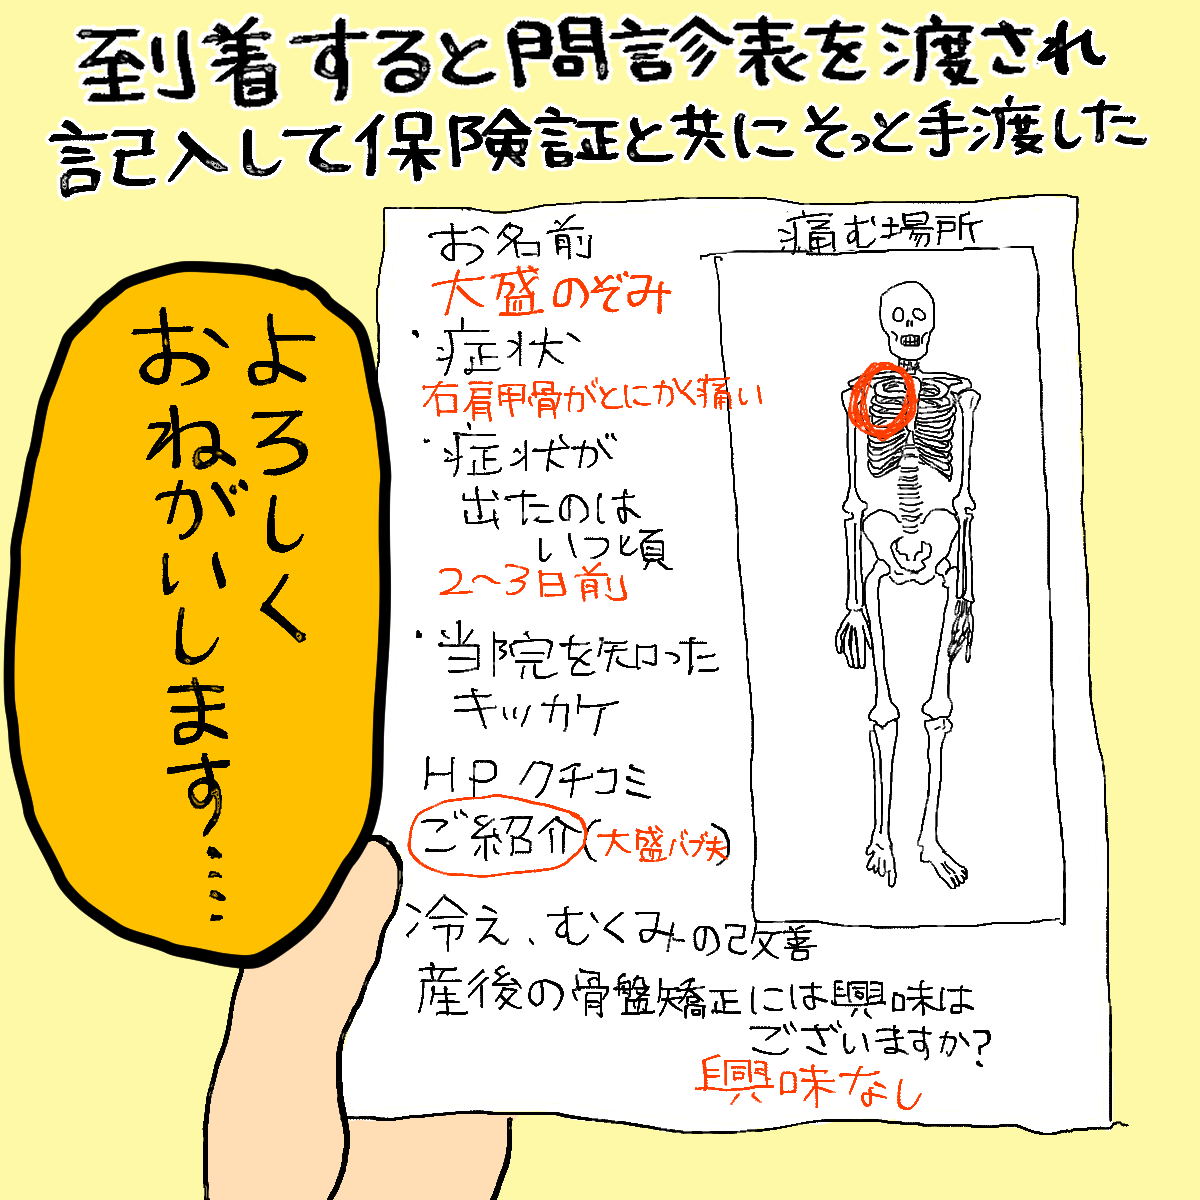 到着すると問診表を渡され
記入して保険証と共にそっと手渡した
よろしく
おねがいします…
お名前
大盛のぞみ
・症状
右肩甲骨がとにかく痛い
・症状が
出たのは
いつ頃
2～3日前
・当院を知った
キッカケ
HP クチコミ
ご紹介(大盛バブ夫)
痛む場所
冷え、むくみの改善
産後の骨盤矯正には興味は
ございますか?
興味なし